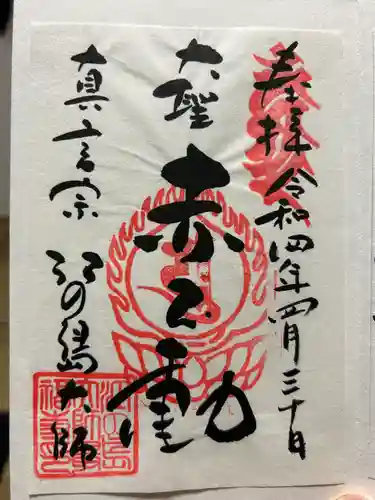 奉拝 令和四年四月三十日
大聖
赤不動
真言宗
江の島大師